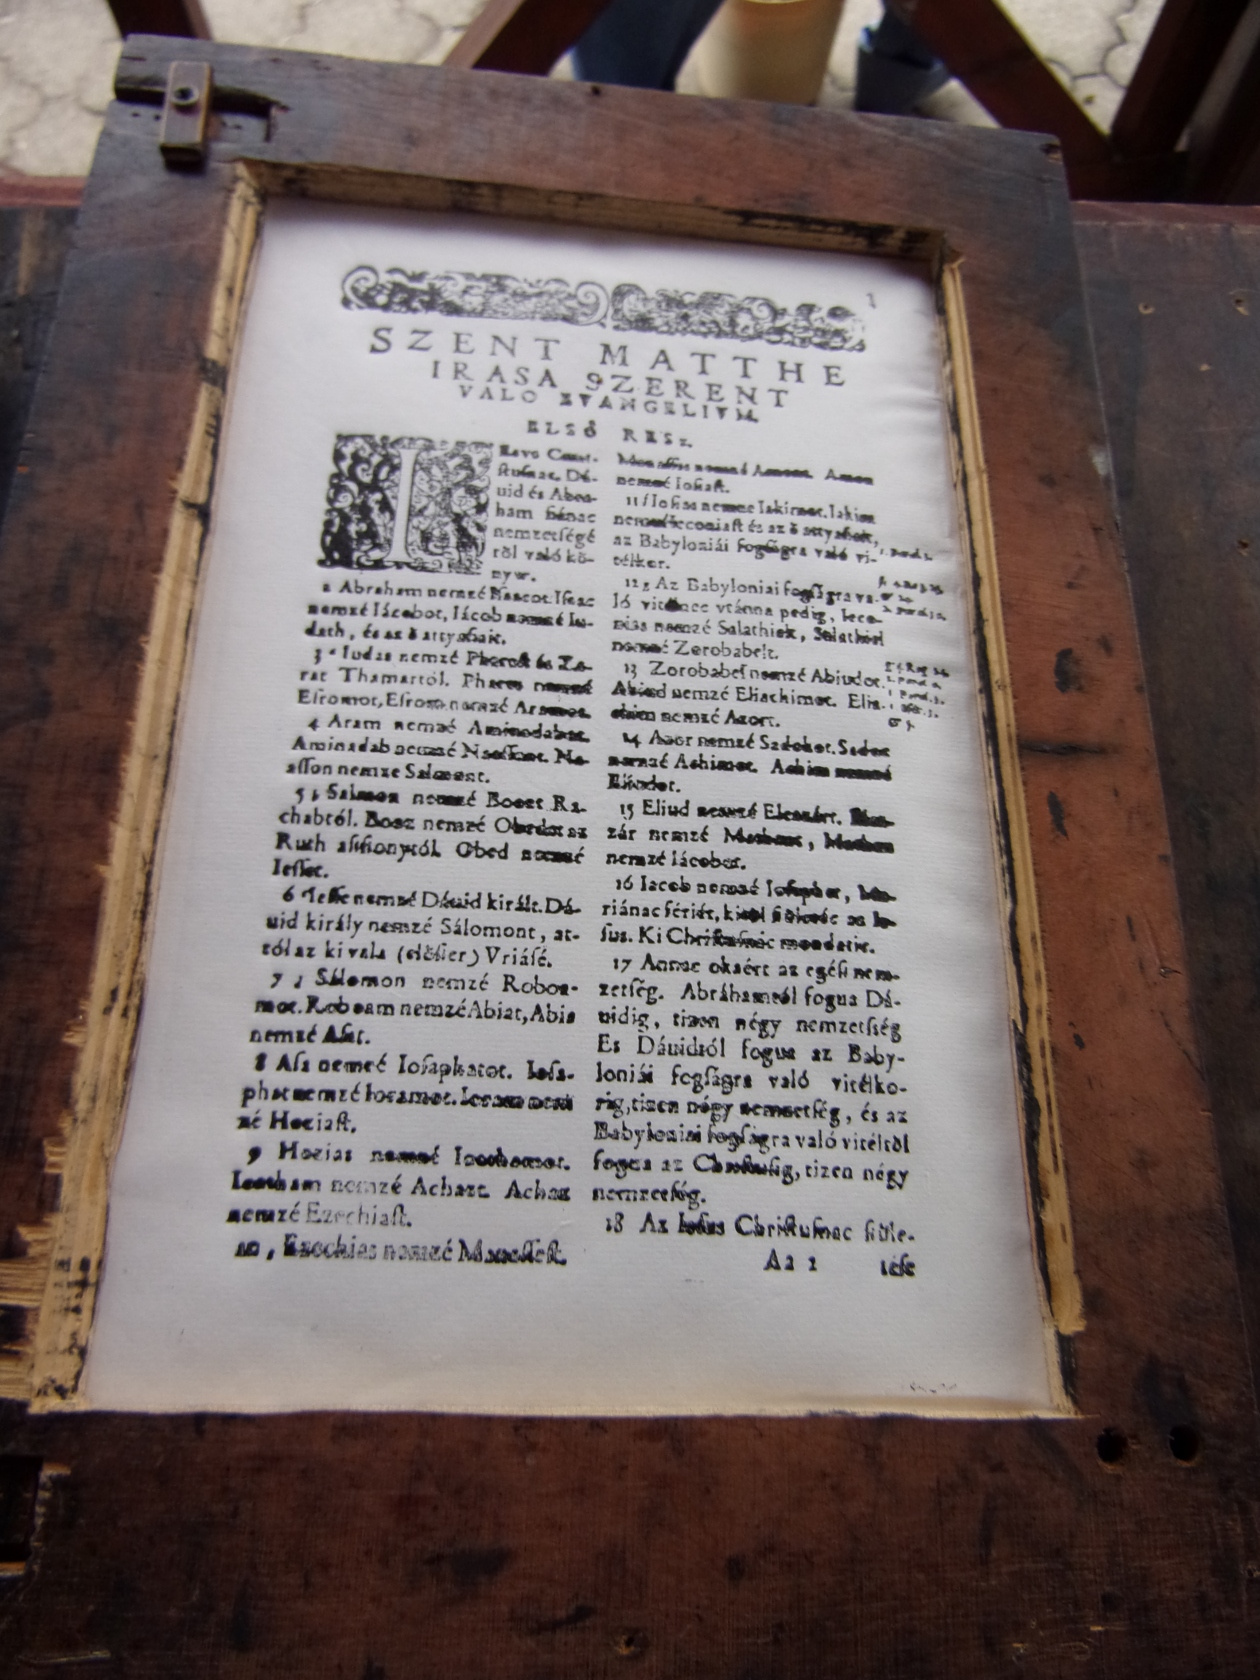 1
SZENT MATTHE
IRASA SZERENT
VALO EVANGELIVM.
ELSŐ RESZ.
uid és Abra-
ham fiánac
nemzetſégé
ről való kö-
nyw.
2 Abraham nemzé Iſaacot. Iſaac
nemzé Iácobot, Iácob nemzé Iu-
dath, és az ő attyafiait.
3 Iudas nemzé Phareſt és Za-
rat Thamartól. Phares nemzé
Eſromot, Eſrom nemzé Aramot.
4 Aram nemzé Aminadabot.
Aminadab nemzé Naaſſont. Na-
aſſon nemze Salmont.
5 Salmon nemzé Boozt Ra-
chabtól. Booz nemzé Obedot az
Ruth aſſſonytól. Obed nemzé
Ieſſet.
6 Ieſſe nemzé Dáuid királt. Dá-
uid király nemzé Sálomont, at-
tól az ki vala (előſſer) Vriáſé.
7 Sálomon nemzé Roboa-
mot. Roboam nemzé Abiat, Abia
nemzé Aſat.
8 Aſa nemzé Ioſaphatot. Ioſa-
phat nemzé Ioramot. Ioram nem
zé Hoziaſt.
9 Hozias nemzé Ioathamot.
Ioatham nemzé Achazt. Achaz
nemzé Ezechiaſt.
10 Ezechias nemzé Manaſſeſt.
Manaſſes nemzé Amont. Amon
nemzé Ioſiaſt.
11 Ioſias nemze Iakimot. Iakim
nemzé Ieconiaſt és az ő attyafiait,
az Babyloniái fogſágra való vi-
télker.
12 Az Babyloniai fogſágra va-
ló vitönec vtánna pedig, Ieco-
nias nemzé Salathielt, Salathiel
nemzé Zerobabelt.
13 Zorobabel nemzé Abiudot.
Abiud nemzé Eliachimot. Elia-
chim nemzé Azort.
14 Azor nemzé Sadokot. Sadoc
nemzé Achimot. Achim nemzé
Eliudot.
15 Eliud nemzé Eleazárt. Elea-
zár nemzé Mathant, Mathan
nemzé Iácobot.
16 Iacob nemzé Ioſephet, Ma-
riánac fériét, kitől ſzületéc az Ie-
ſus. Ki Chriſtuſnac mondatic.
17 Annac okaért az egéſſ nem-
zetſég. Abráhamtól fogua Dá-
uidig, tizen négy nemzetſég
Es Dáuidtól fogua az Baby-
loniái fogſágra való vitélko-
rig, tizen négy nemzetſég, és az
Babyloniai fogſágra való vitéltől
fogua az Chriſtuſig, tizen négy
nemzetſég.
18 Az Ieſus Chriſtuſnac ſſüle-
Aa 1 téſe